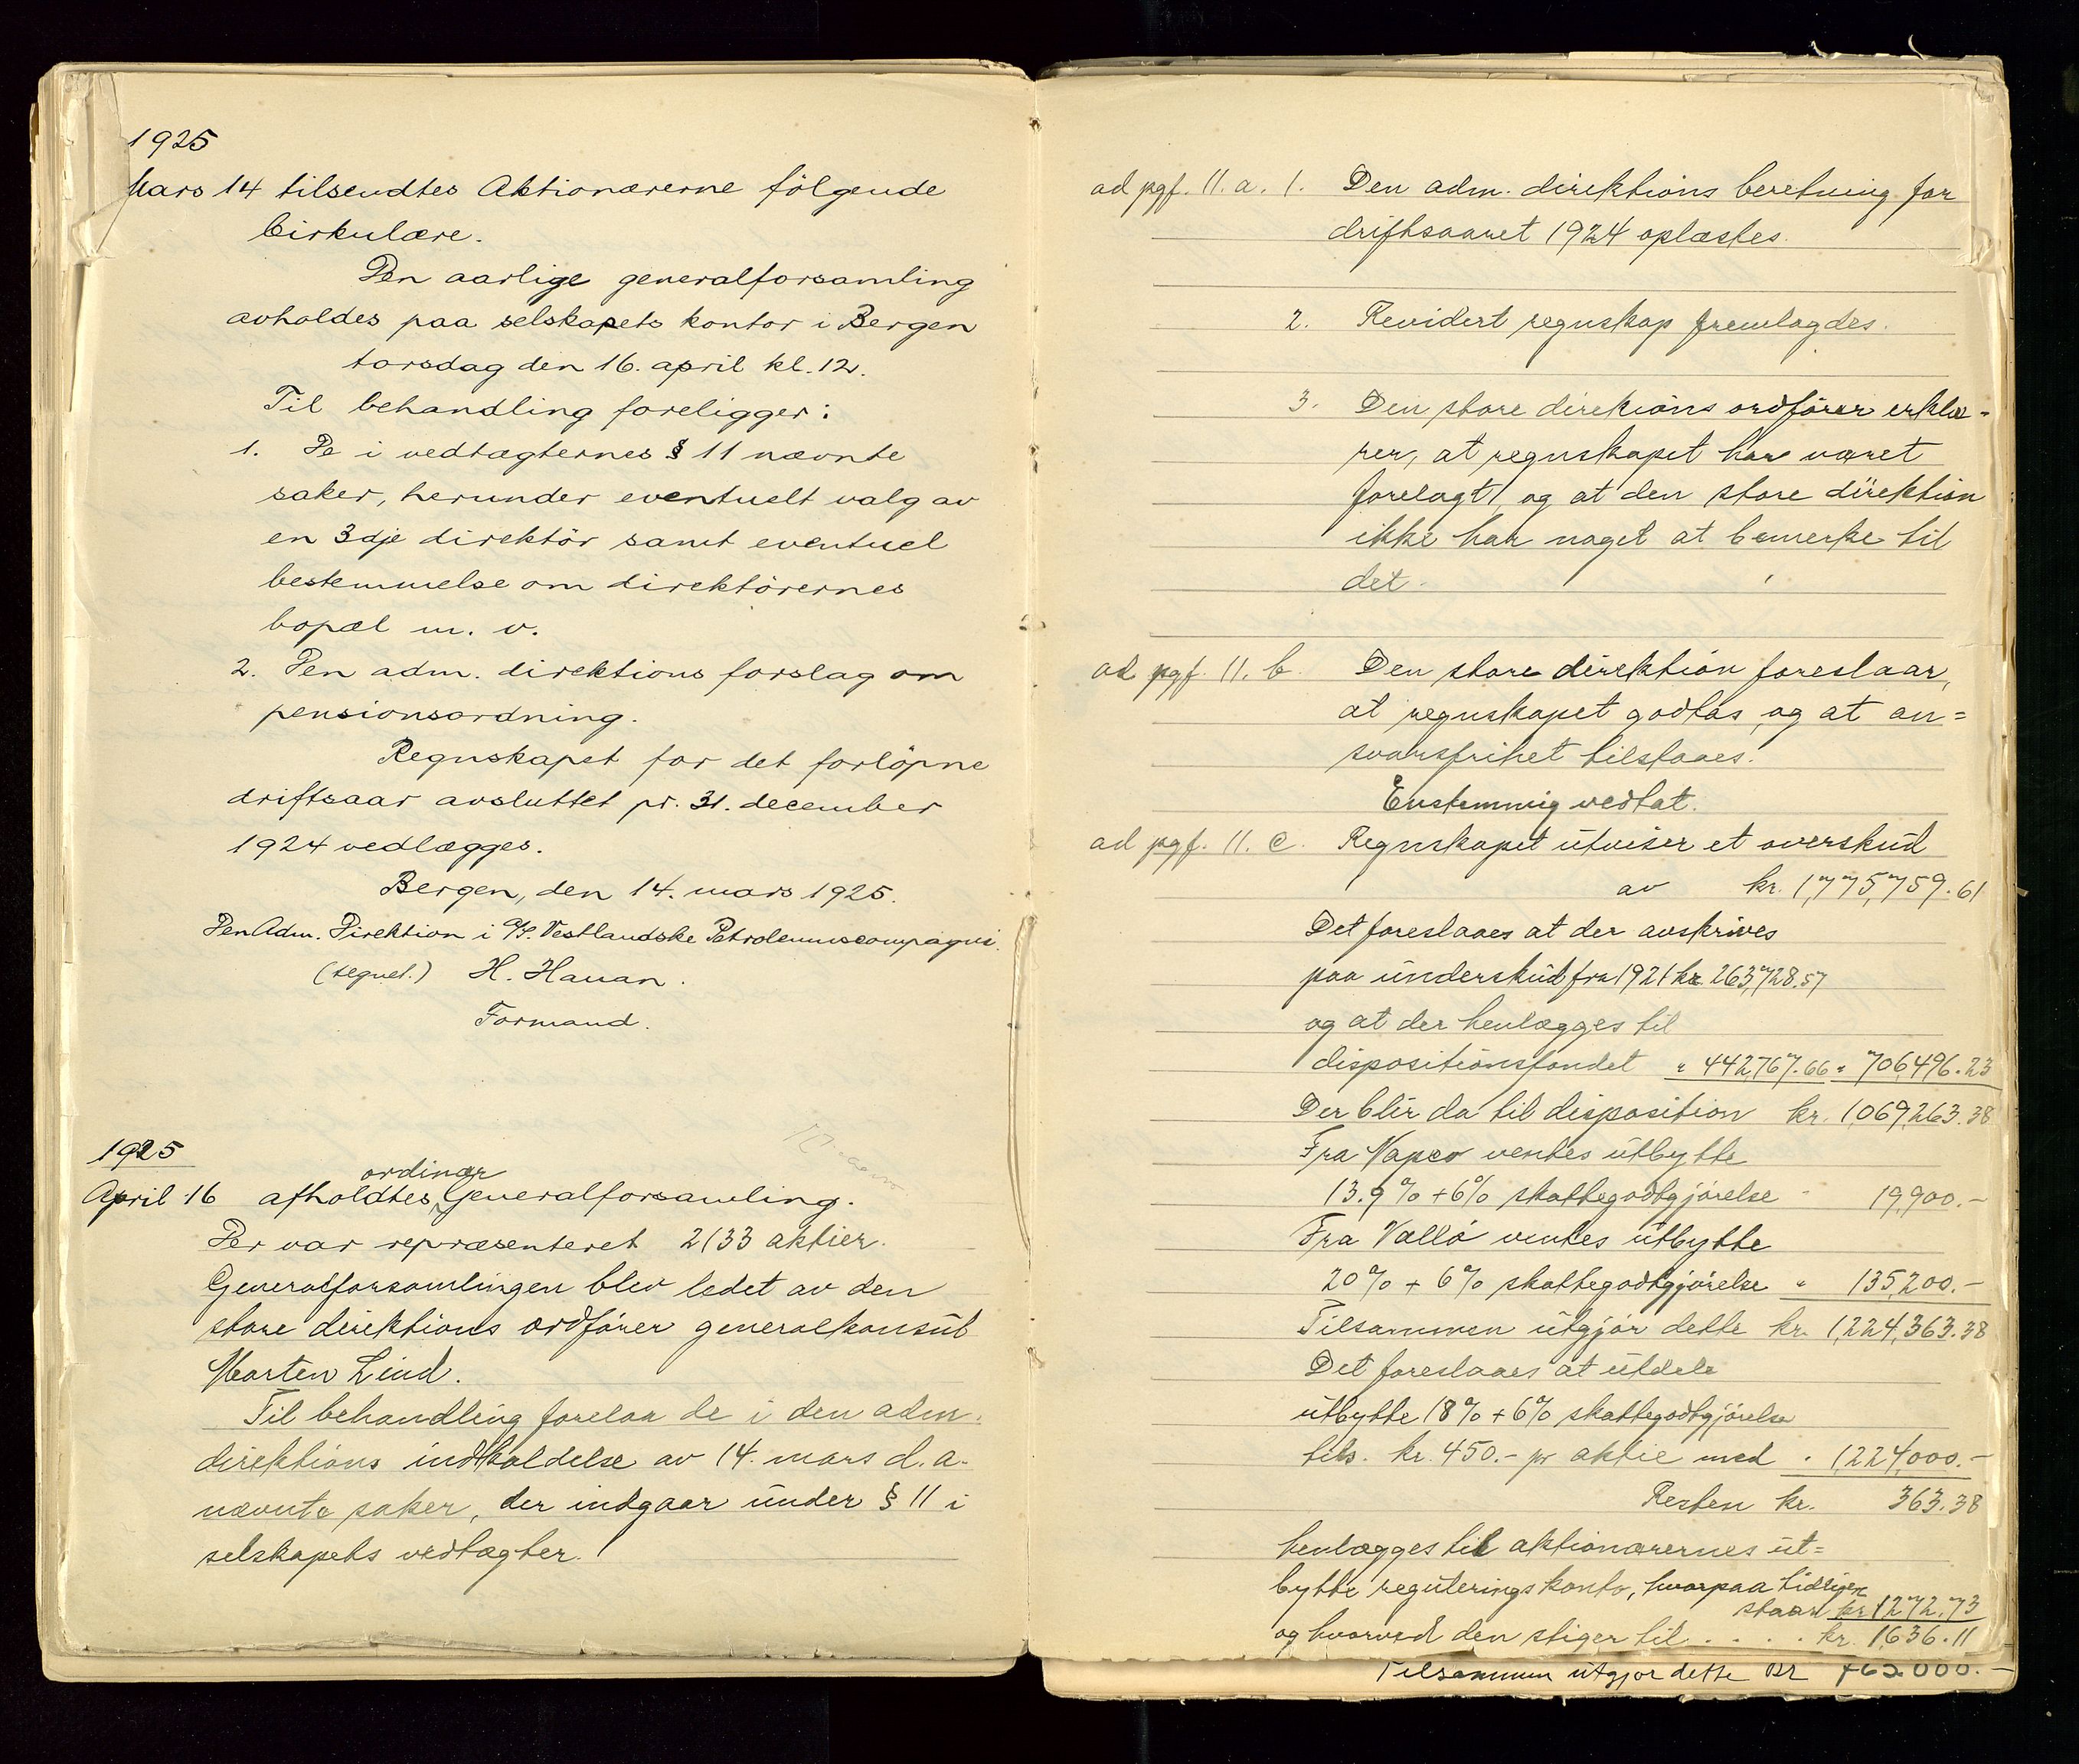 1925
Mars 14 tilsendtes Aktionærerne följende
Cirkulære.
Den aarlige generalforsamling
avholdes paa selskapets kontor i Bergen
torsdag den 16. april kl. 12.
Til behandling foreligger:
1. De i vedtægternes § 11 nævnte
saker, herunder eventuelt valg av
en 3dje direktör samt eventuel
bestemmelse om direktörernes
bopæl m. v.
2. Den adm. direktions forslag om
pensionsordning.
Regnskapet for det forlöpne
driftsaar avsluttet pr. 31. december
1924 vedlægges.
Bergen, den 14. mars 1925.
Den Adm. Direktion i A/S. Vestlandske Petroleumscompagni.
(tegnet.) H. Hauan.
Formand.
1925
ordinær
April 16 afholdtes Generalforsamling.
Der var repræsenteret 2133 aktier.
Generalforsamlingen blev ledet av den
store direktions ordförer generalkonsul
Morten Lind.
Til behandling forelaa de i den adm.
direktions indkaldelse av 14. mars d. a.
nævnte saker, der indgaar under § 11 i
selskapets vedtægter.
ad pgf. 11. a. 1. Den adm. direktions beretning for
driftsaaret 1924 oplæstes.
2. Revidert regnskap fremlagdes.
3. Den store direktions ordförer erklæ-
rer, at regnskapet har været
forelagt, og at den store direktion
ikke har noget at bemerke til
det.
ad pgf. 11. b. Den store direktion foreslaar,
at regnskapet godtas, og at an=
svarsfrihet tilstaaes.
Enstemmig vedtat.
ad pgf. 11. c. Regnskapet utviser et overskud
av kr. 1,775,759.61
Det foreslaaes at der avskrives
paa underskud fra 1921 kr. 263,728.57
og at der henlægges til
dispositionsfondet " 442,767.66 " 706,496.23
Der blir da til disposition kr. 1,069,263.38
Fra Vapco ventes utbytte
13.9% + 6% skattegodtgjörelse " 19,900.-
Fra Vallö ventes utbytte
20% + 6% skattegodtgjörelse " 135,200.-
Tilsammen utgjör dette kr. 1,224,363.38
Det foreslaaes at utdele
utbytte 18% + 6% skattegodtgjörelse
tils. kr. 450.- pr aktie med " 1,224,000.-
Resten kr. 363.38
henlægges til aktionærernes ut=
bytte reguleringskonto, hvorpaa tidligere
staar kr. 1272.73
og hvorved den stiger til . . . . kr. 1,636.11
Tilsammen utgjör dette Kr 762000.-